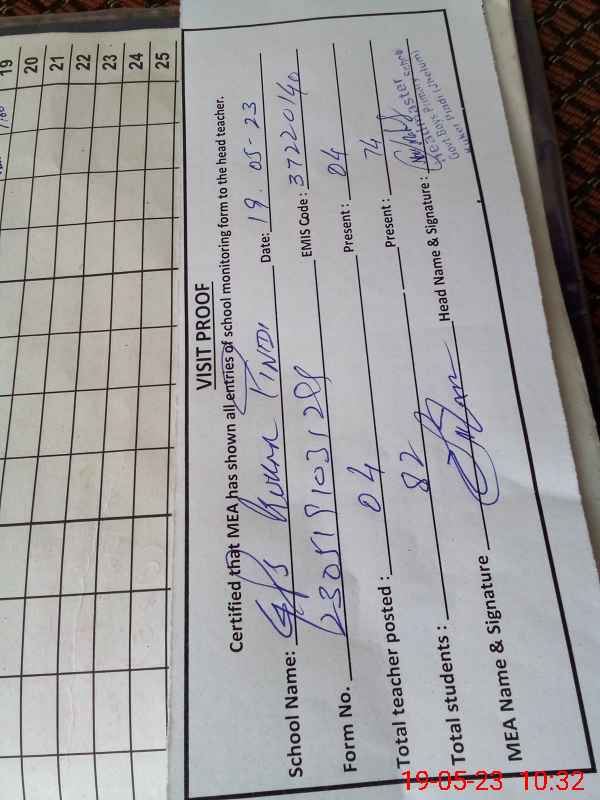 19
20
21
22
23
24
25
VISIT PROOF
Certified that MEA has shown all entries of school monitoring form to the head teacher.
School Name: GPS Date: 19-05-23
Form No. EMIS Code: 37220140
Total teacher posted: 04 Present: 04
Total students: 82 Present: 74
MEA Name & Signature Head Name & Signature:
Headmaster
Govt Boys Primary School
19-05-23 10:32